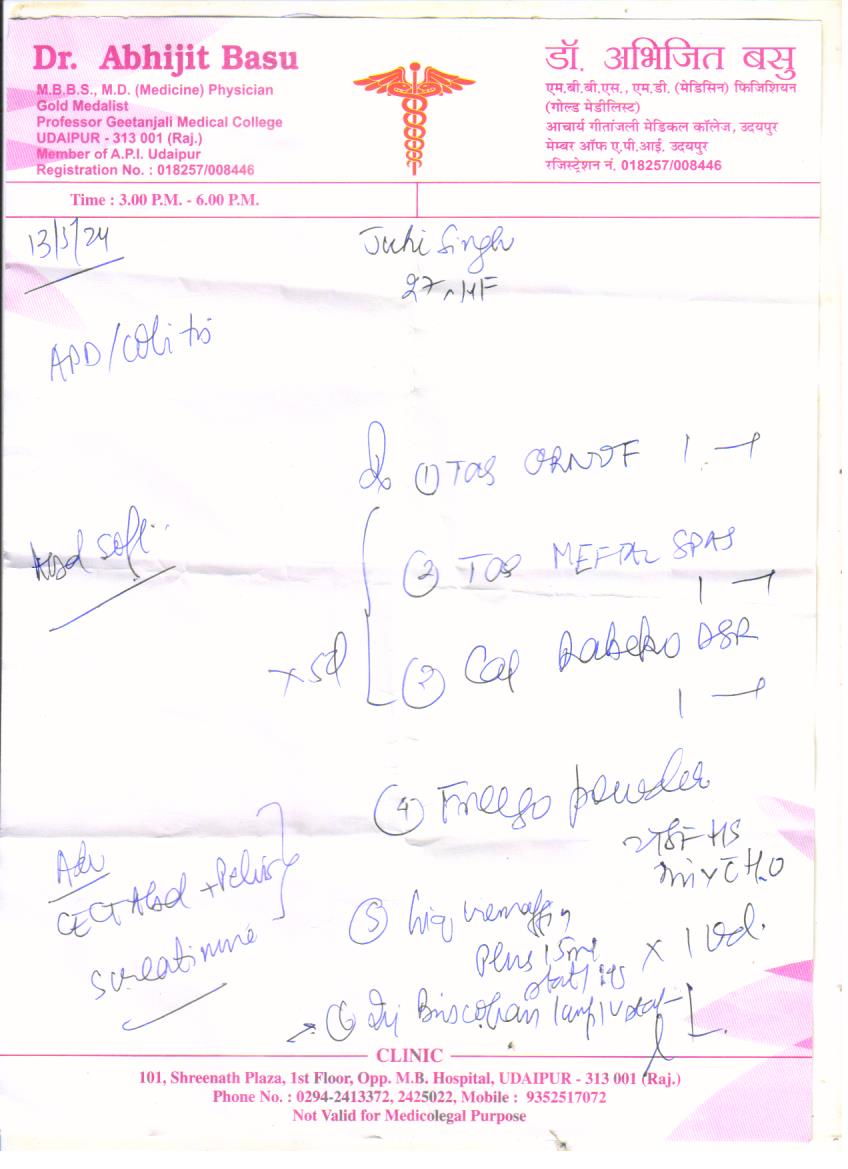 Dr. Abhijit Basu
M.B.B.S., M.D. (Medicine) Physician
Gold Medalist
Professor Geetanjali Medical College
UDAIPUR - 313 001 (Raj.)
Member of A.P.I. Udaipur
Registration No. : 018257/008446
डॉ. अभिजित बसु
एम.बी.बी.एस., एम.डी. (मेडिसिन) फिजिशियन
(गोल्ड मेडीलिस्ट)
आचार्य गीतांजली मेडिकल कॉलेज, उदयपुर
मेम्बर ऑफ ए.पी.आई. उदयपुर
रजिस्ट्रेशन नं. 018257/008446
Time : 3.00 P.M. - 6.00 P.M.
Juhi Singh
APD/colitis
① TAB ORNOF 1 —1
Abd soft
② TAB MEFTAL SPAS
1 —1
x 5d
Cap Rabeko DSR
1 —1
④ Freego powder
HS
mix c H2O
Adv
CECT Abd + Pelvis
S creatinine
⑤ Liq
Plus 15ml x 10d.
stat
⑥ Inj Buscopan 1 amp IV stat
CLINIC
101, Shreenath Plaza, 1st Floor, Opp. M.B. Hospital, UDAIPUR - 313 001 (Raj.)
Phone No. : 0294-2413372, 2425022, Mobile : 9352517072
Not Valid for Medicolegal Purpose